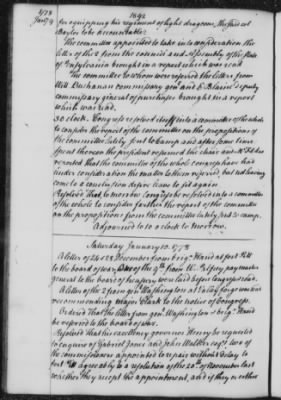 1778
Jany 9
1842
for equipping his regiment of light dragoons, the said col
Baylor to be accountable.
The committee appointed to take into consideration the
letter of the 2 from the council and of the State
of Pensylvania brought in a report which was read
The committee to whom were referred the letters from
Will Buchanan commissary genl and E Blaine deputy
commissary general of purchases brought in a report
which was read.
3 o clock. Congress resolved itself into a committee of the whole
to consider the report of the committee on the propositions of
the committee lately sent to camp and after some time
spent thereon the president resumed the chair and
reported that the committee of the whole congress have had
under consideration the matter to them referred, but not having
come to a conclusion desire leave to sit again
Resolved That to morrow Congress be resolved into a committee
of the whole to consider farther the report of the committee
on the propositions from the committee lately sent to camp.
Adjourned to 10 o clock to morrow.
Saturday January 10. 1778
A letter of 24 & 28 December from brigr Hand at fort Pitt
to the board of war, of the 9th from Wm Palfrey paymaster
general to the board of treasury were laid before Congress & read.
A letter of the 2 from genl Washington at Valley forge was read
recommending major Clark to the notice of Congress.
Ordered That the letter from genl Washington & brigr Hand
be referred to the board of war.
Resolved That his excellency governor Henry be requested
to enquire of Gabriel Jones and John Walker esqrs two of
the commissioners appointed to repair without delay to
fort Pitt agreeably to a resolution of the 20th of November last
whether they accept the appointment, and if they or either